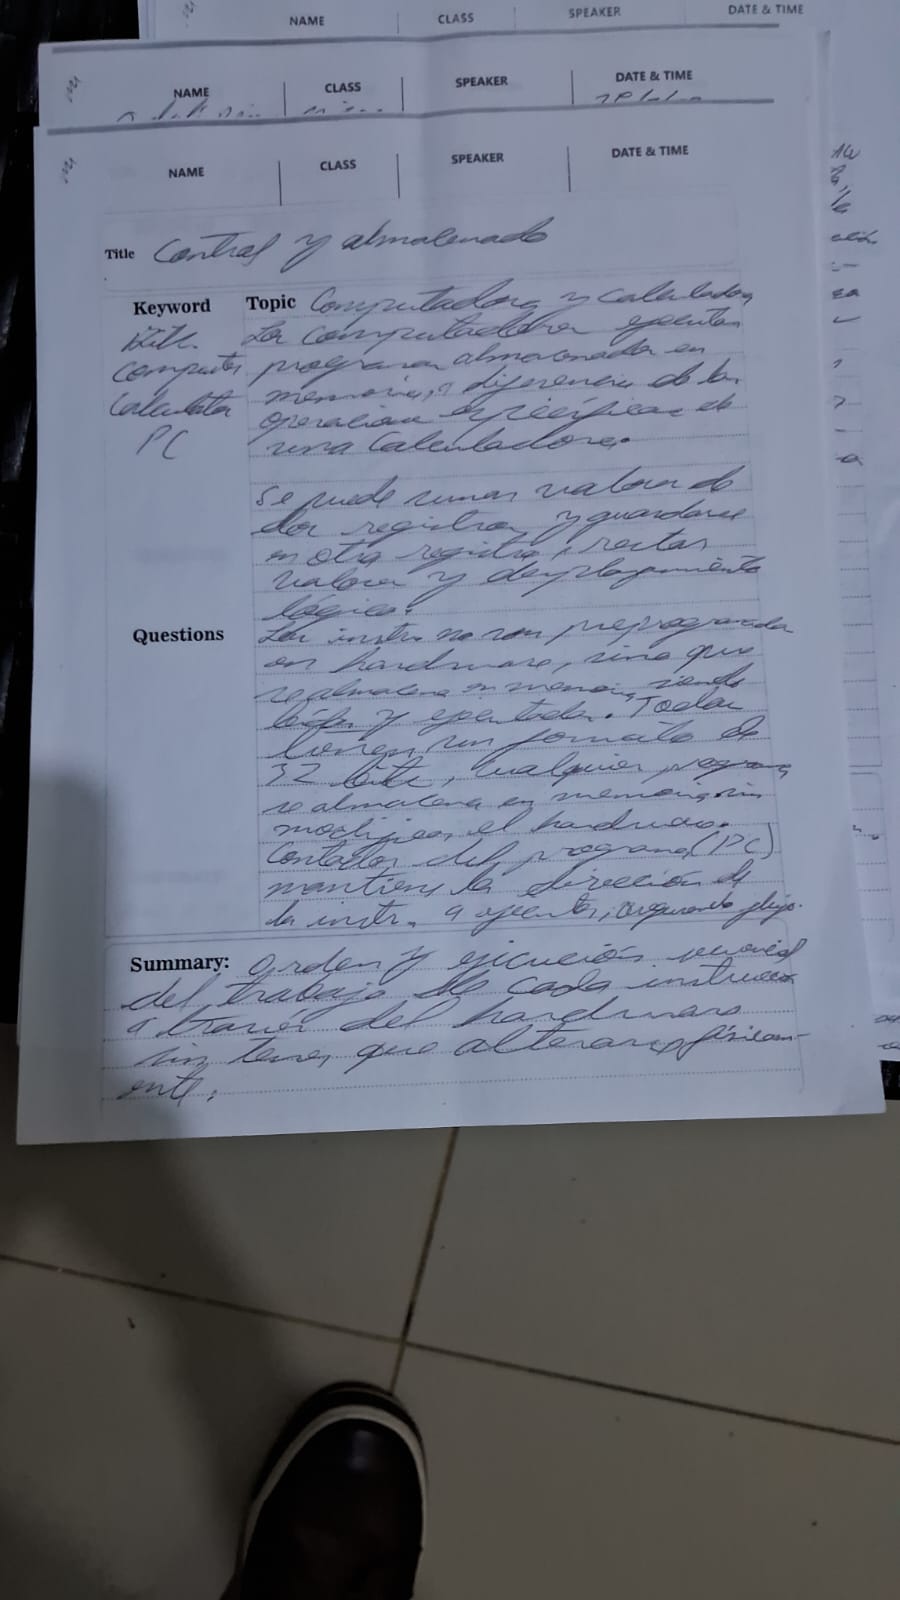 NAME CLASS SPEAKER DATE & TIME
NAME CLASS SPEAKER DATE & TIME
NAME CLASS SPEAKER DATE & TIME
Title Control y almacenado
Keyword Topic Computadora y calculadora
La computadora ejecuta
computer programa almacenado en
calculator memoria, a diferencia de las
PC operaciones específicas de
una calculadora.
Se puede sumar valores de
dos registros y guardarse
en otro registro, restar
valores y desplazamiento
lógico.
Questions Las instr. no son preprogramadas
en hardware, sino que
se almacena en memoria, siendo
leídas y ejecutadas. Todas
tienen un formato de
32 bits, cualquier programa
se almacena en memoria, sin
modificar el hardware.
Contador del programa (PC)
mantiene la dirección de
la instr. a ejecutar, asegurando flujo.
Summary: Orden y ejecución
del trabajo de cada instrucción
a través del hardware
sin tener que alterarse físicam-
ente.